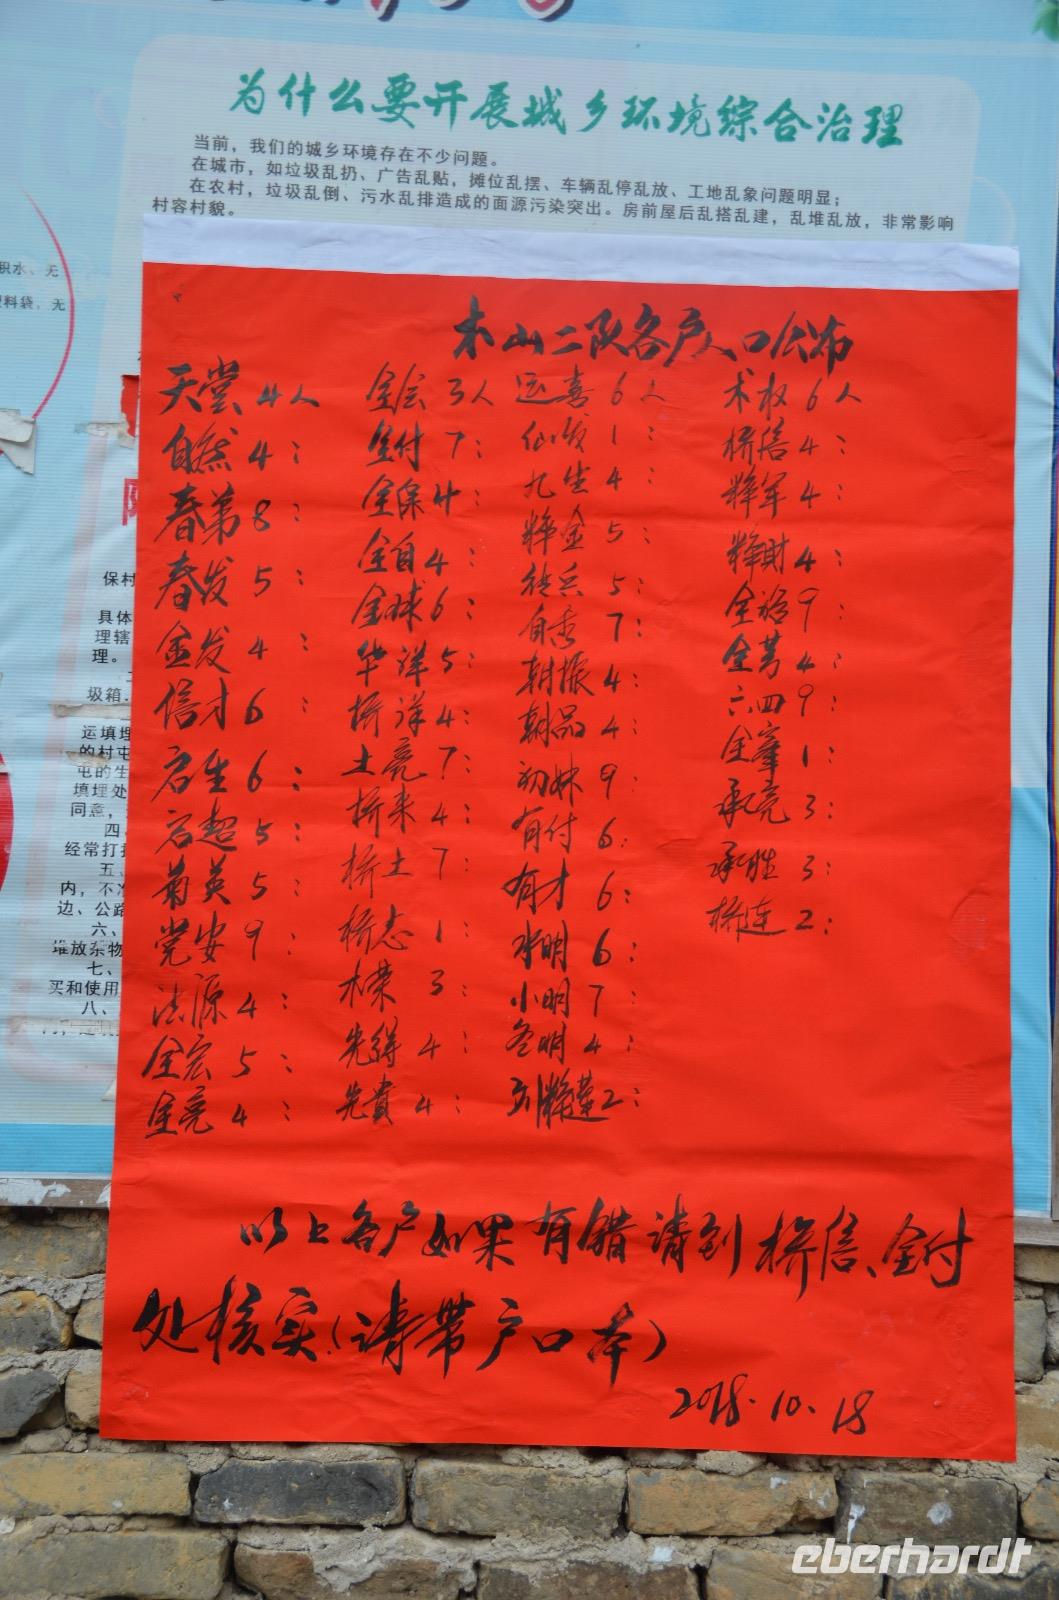 为什么要开展城乡环境综合治理
当前，我们的城乡环境存在不少问题。
在城市，如垃圾乱扔、广告乱贴，摊位乱摆、车辆乱停乱放、工地乱象问题明显；
在农村，垃圾乱倒、污水乱排造成的面源污染突出。房前屋后乱搭乱建，乱堆乱放，非常影响
村容村貌。
积水、无
料袋，无
保村
具体
理辖
理。
圾箱.
运填埋
的村屯
屯的生
填埋处
同意，
四、
经常打扫
五、
内，不准
边、公路
六、
堆放杂物
七、
买和使用
八、
木山二队各户人口公布
天堂 4人 全会 3人 运喜 6人 术权 6人
自然 4： 全付 7： 仙发 1： 桥信 4：
春第 8： 全保 4： 九生 4： 粹军 4：
春发 5： 全自 4： 粹金 5： 粹财 4：
金发 4： 全球 6： 5： 全裕 9：
信才 6： 华祥 5： 自秀 7： 全芳 4：
启生 6： 桥祥 4： 朝振 4： 六四 9：
启超 5： 土亮 7： 朝品 4： 全峯 1：
菊英 5： 桥来 4： 初妹 9： 承亮 3：
党安 9： 桥土 7： 有付 6： 承胜 3：
法源 4： 桥志 1： 有才 6： 桥连 2：
全宏 5： 木荣 3： 水明 6：
全亮 4： 先得 4： 小明 7：
先貴 4： 冬明 4：
2：
以上各户如果有错请到桥信、全付
处核实（请带户口本）
2018.10.18
eberhardt